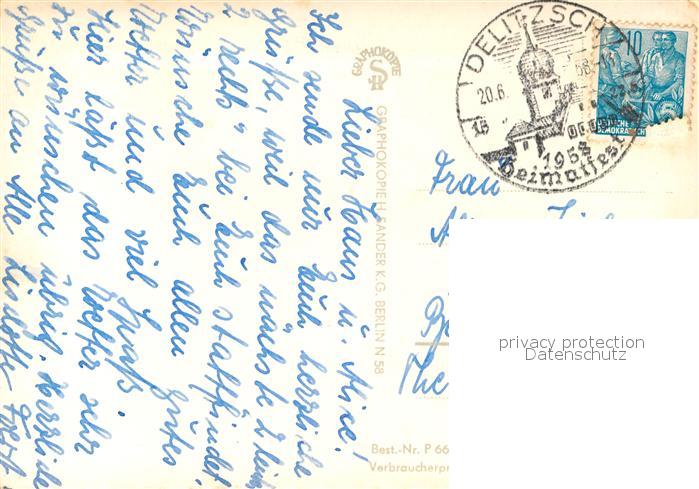 Lieber Hans u. Alice!
Ich sende nur Euch herzliche
Grüße, weil das nächste
2 recht " bei Euch stattfindet.
Wünsche Euch allen Gutes
Wetter und viel Spaß.
Hier läßt das Wetter sehr
zu wünschen übrig. Herzliche
Grüße an Alle
GRAPHOKOPIE
GRAPHOKOPIE H. SANDER K.G. BERLIN N 58
DELITZSCH
20.6.
1958
Heimatfest
10
DEMOKRATISCHE
Frau
Best.-Nr. P 66
Verbraucherpr
privacy protection
Datenschutz